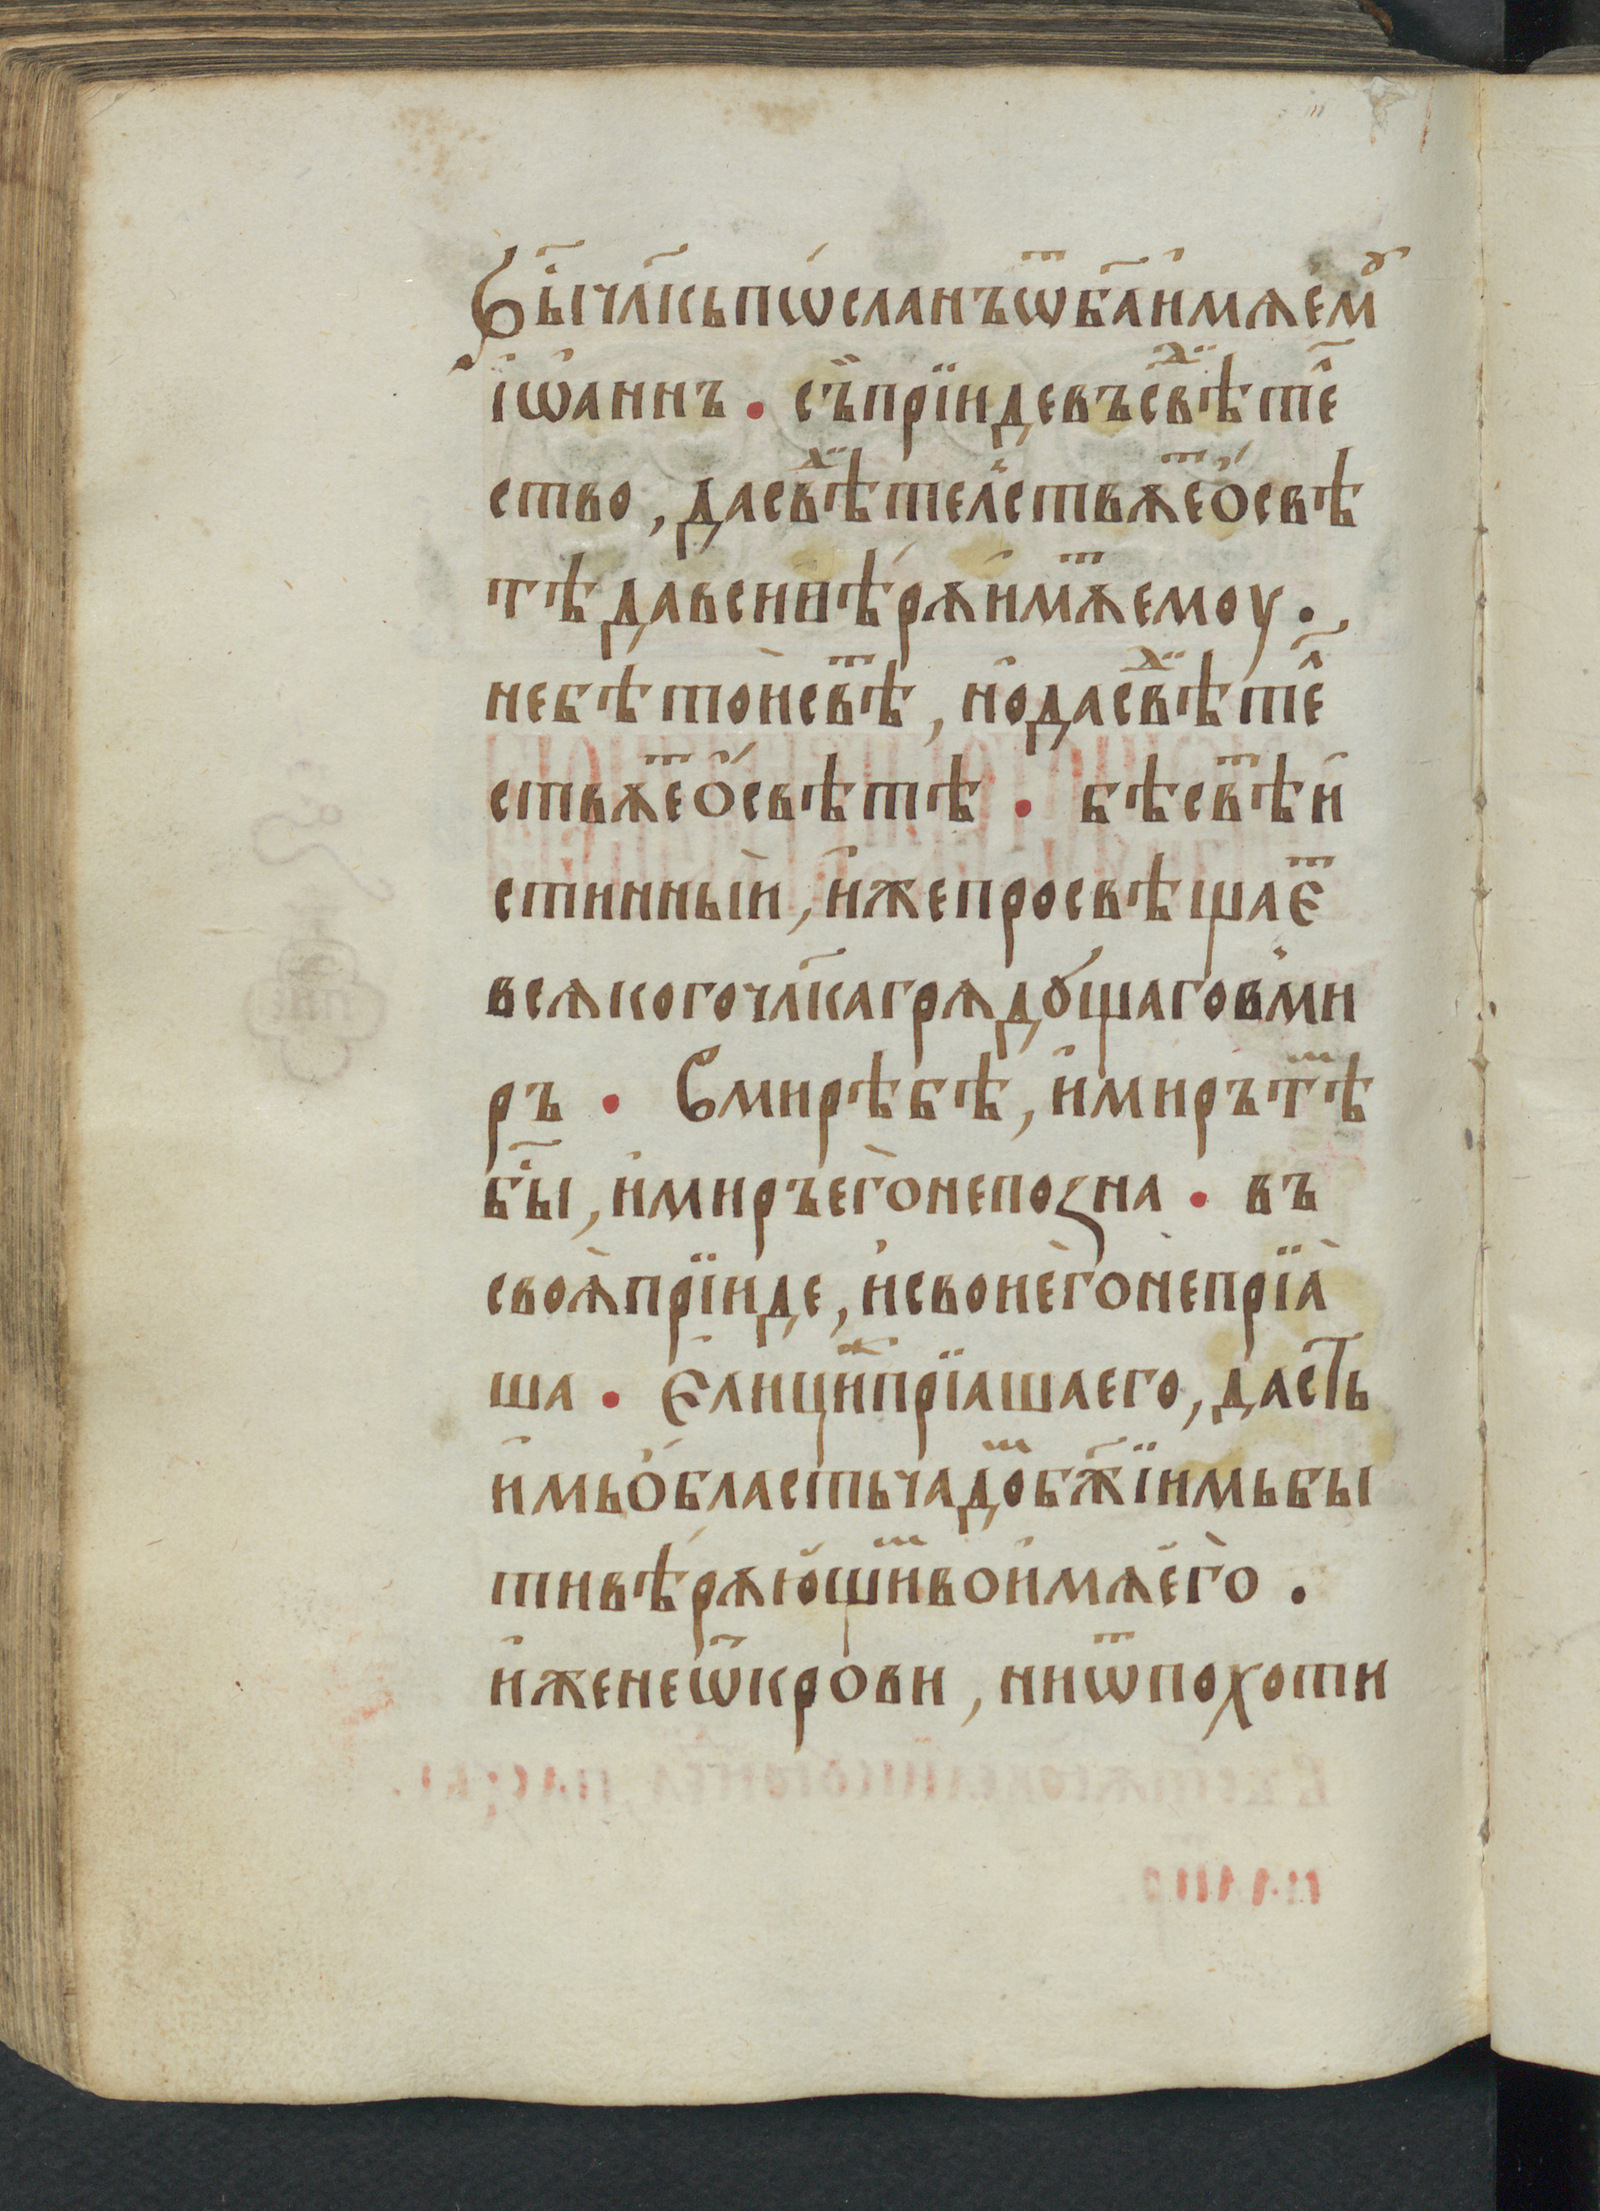 Бы́ⷭ҇ члк҃ъ пѡ́сланъ ѿ ба҃ и҆мѧ є҆мꙋ
і҆ѡ҆аннъ • се́й прїиде въ свⷣѣтеⷧ҇
ство, да свⷣѣтельствѧеⷮ о҆ свѣ
тѣ да вси вѣ́рѧ и҆мⷮѧ ємоу .
не бѣ то́й свⷮѣ, но҆ да свⷣѣтеⷧ҇
ствѧеⷮ о҆ свѣтѣ • бѣ свⷮѣ и҆
стинныѝ, и҆же просвѣщаєⷮ
всѧкого члк҃а грѧдꙋ́щаго в ми
ръ • В мирѣ бѣ, и҆ миръ тⷨѣ
бы́ⷭ҇, и҆ миръ его̀ не позна • въ
своѧ̀ прїиде, и҆ свои е҆го̀ не прїѧ̀
ша • Єлицⷤи прїаша его, дасть
и҆мъ ѻ҆бласть чадⷨо бж҃їимъ бы
ти вѣ́рѧю҆щⷨи во и҆мѧ є҆го̀ .
и҆же не ѿ крови, ни ѿ похоти